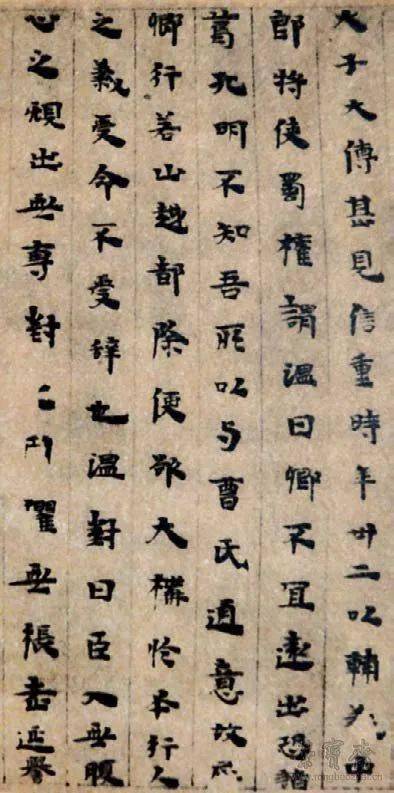 太子太傅甚見信重時年卅二以輔義中
郎將使蜀權謂温曰卿不宜遠出恐諸
葛孔明不知吾所以与曹氏通意故屈
卿行若山越都除便欲大構於丕行人
之義受命不受辭也温對曰臣入無腹
心之規出無專對之用懼無張老延譽
榮寶齋
www.rongbaozhai.cn